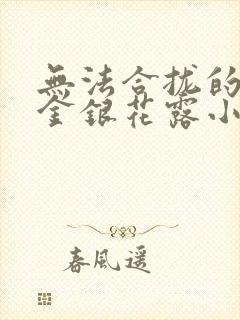 無法合拢的
金銀花露小
春風遥